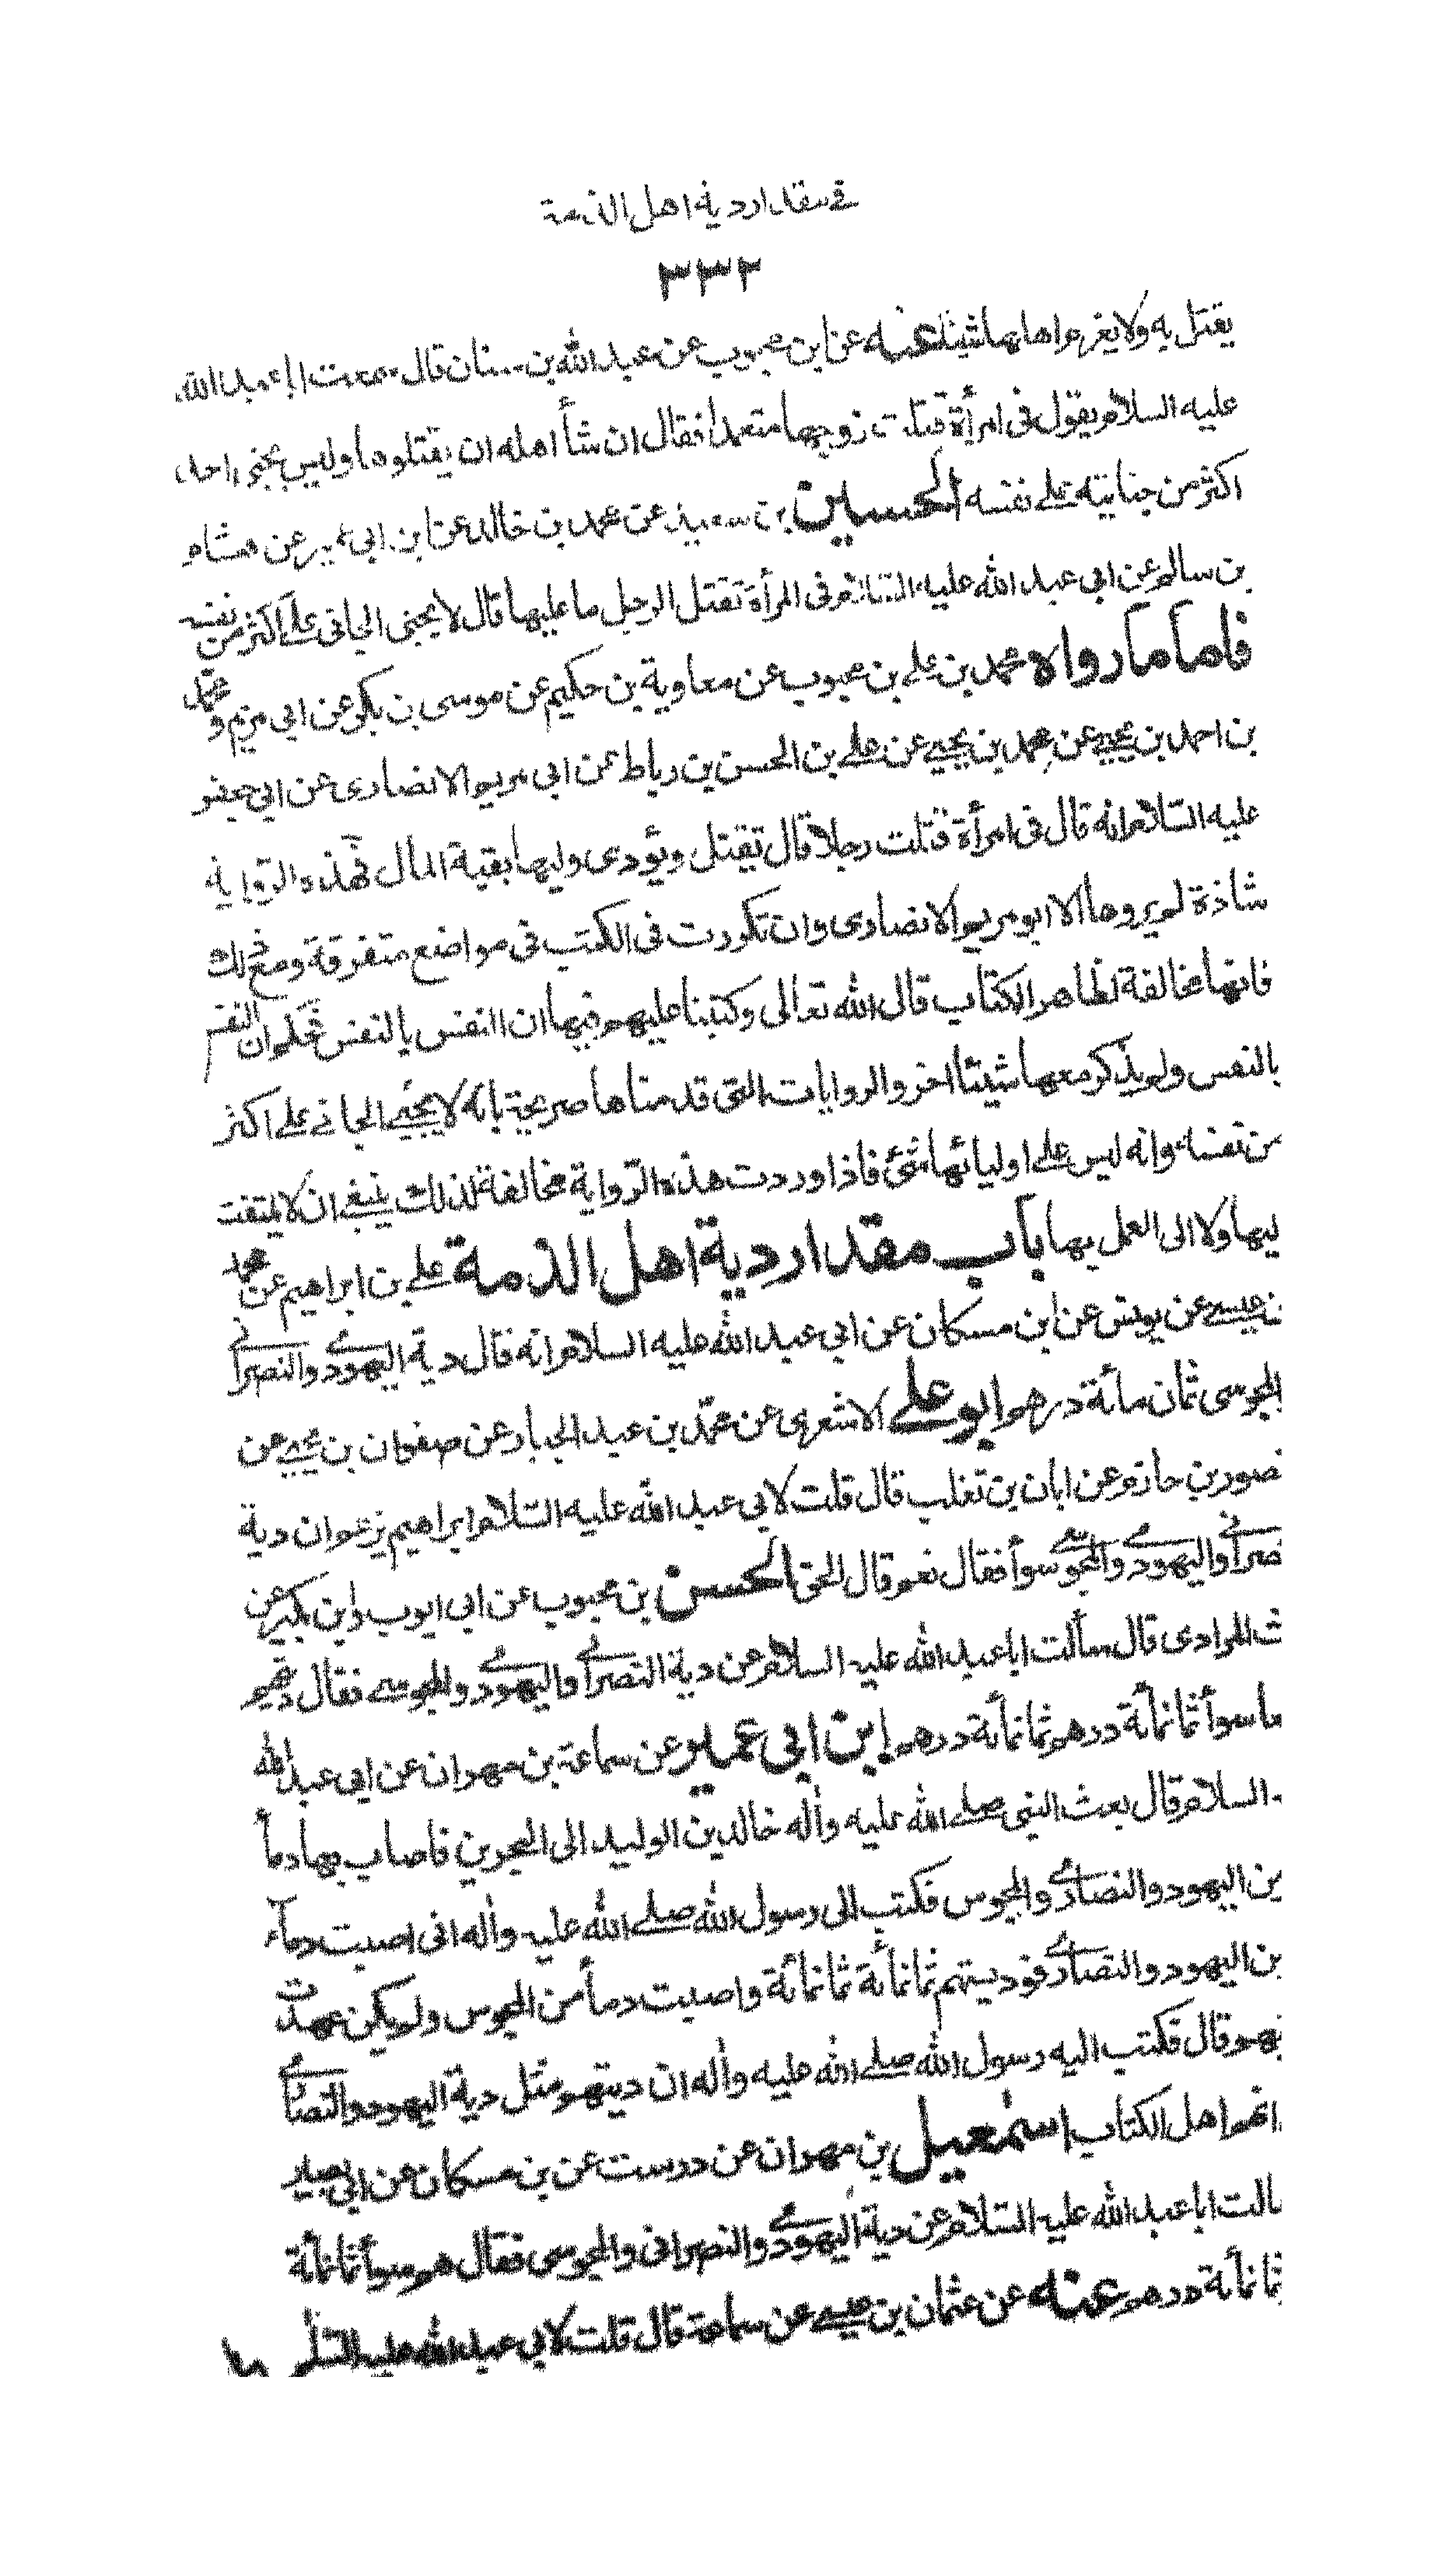 في مقدار دية اهل الذمة
٣٣٢
يقتل به ولا يغرم اهلها شيئا عنه عن ابن محبوب عن عبد الله بن سنان قال سمعت ابا عبد الله
عليه السلام يقول في امرأة قتلت زوجها متعمدا فقال ان شأ اهله ان يقتلوها وليس يجني احد
اكثر من جنايته على نفسه الحسين بن سعيد عن محمد بن خالد عن ابن ابي عمير عن هشام
بن سالم عن ابي عبد الله عليه السلام في المرأة تقتل الرجل ما عليها قال لا يجني الجاني على اكثر من نفسه
فاما ما رواه محمد بن علي بن محبوب عن معاوية بن حكيم عن موسى بن بكر عن ابي مريم و محمد
بن احمد بن يحيى عن محمد بن يحيى عن علي بن الحسن بن رباط عن ابي مريم الانصارى عن ابي جعفر
عليه السلام انه قال في امرأة قتلت رجلا قال تقتل ويؤدى وليها بقية المال فهذه الرواية
شاذة لم يروها الا ابو مريم الانصارى وان تكررت في الكتب في مواضع متفرقة ومع ذلك
فانها مخالفة لظاهر الكتاب قال الله تعالى وكتبنا عليهم فيها ان النفس بالنفس فحكم ان النفس
بالنفس ولم يذكر معها شيئا اخر والروايات التي قدمناها صريحة بانه لا يجني الجاني على اكثر
من نفسه وانه ليس على اوليائها شئ فاذا وردت هذه الرواية مخالفة لذلك ينبغي ان لا يلتفت
ليها ولا الى العمل بها باب مقدار دية اهل الذمة علي بن ابراهيم عن محمد
بن عيسى عن يونس عن ابن مسكان عن ابي عبد الله عليه السلام انه قال دية اليهودي والنصراني
المجوسى ثمان مائة درهم ابو علي الاشعرى عن محمد بن عبد الجبار عن صفوان بن يحيى عن
نصور بن حازم عن ابان بن تغلب قال قلت لابي عبد الله عليه السلام ابراهيم يزعم ان دية
نصراني واليهودي والمجوسي سوأ فقال نعم قال الحق الحسن بن محبوب عن ابي ايوب وابن بكير عن
ث المرادى قال سألت ابا عبد الله عليه السلام عن دية النصراني واليهودي والمجوسي فقال ديتهم
ما سوأ ثمانمائة درهم ثمانمائة درهم ابن ابي عمير عن سماعة بن مهران عن ابي عبد الله
ه السلام قال بعث النبي صلى الله عليه واله خالد بن الوليد الى البحرين فاصاب بها دمأ
بن اليهود والنصارى والمجوس فكتب الى رسول الله صلى الله عليه واله انى اصبت دمآء
بن اليهود والنصارى فوديتهم ثمانمائة ثمانمائة واصبت دمأ من المجوس ولم يكن عهدت
يهم قال فكتب اليه رسول الله صلى الله عليه واله ان ديتهم مثل دية اليهود والنصارى
انهم اهل الكتاب اسمعيل بن مهران عن درست عن بن مسكان عن ابي بصير
سالت ابا عبد الله عليه السلام عن دية اليهودي والنصرانى والمجوسى فقال هم سوأ ثمانمائة
ثمانمائة درهم عنه عن عثمان بن عيسى عن سماعة قال قلت لابي عبد الله عليه السلم